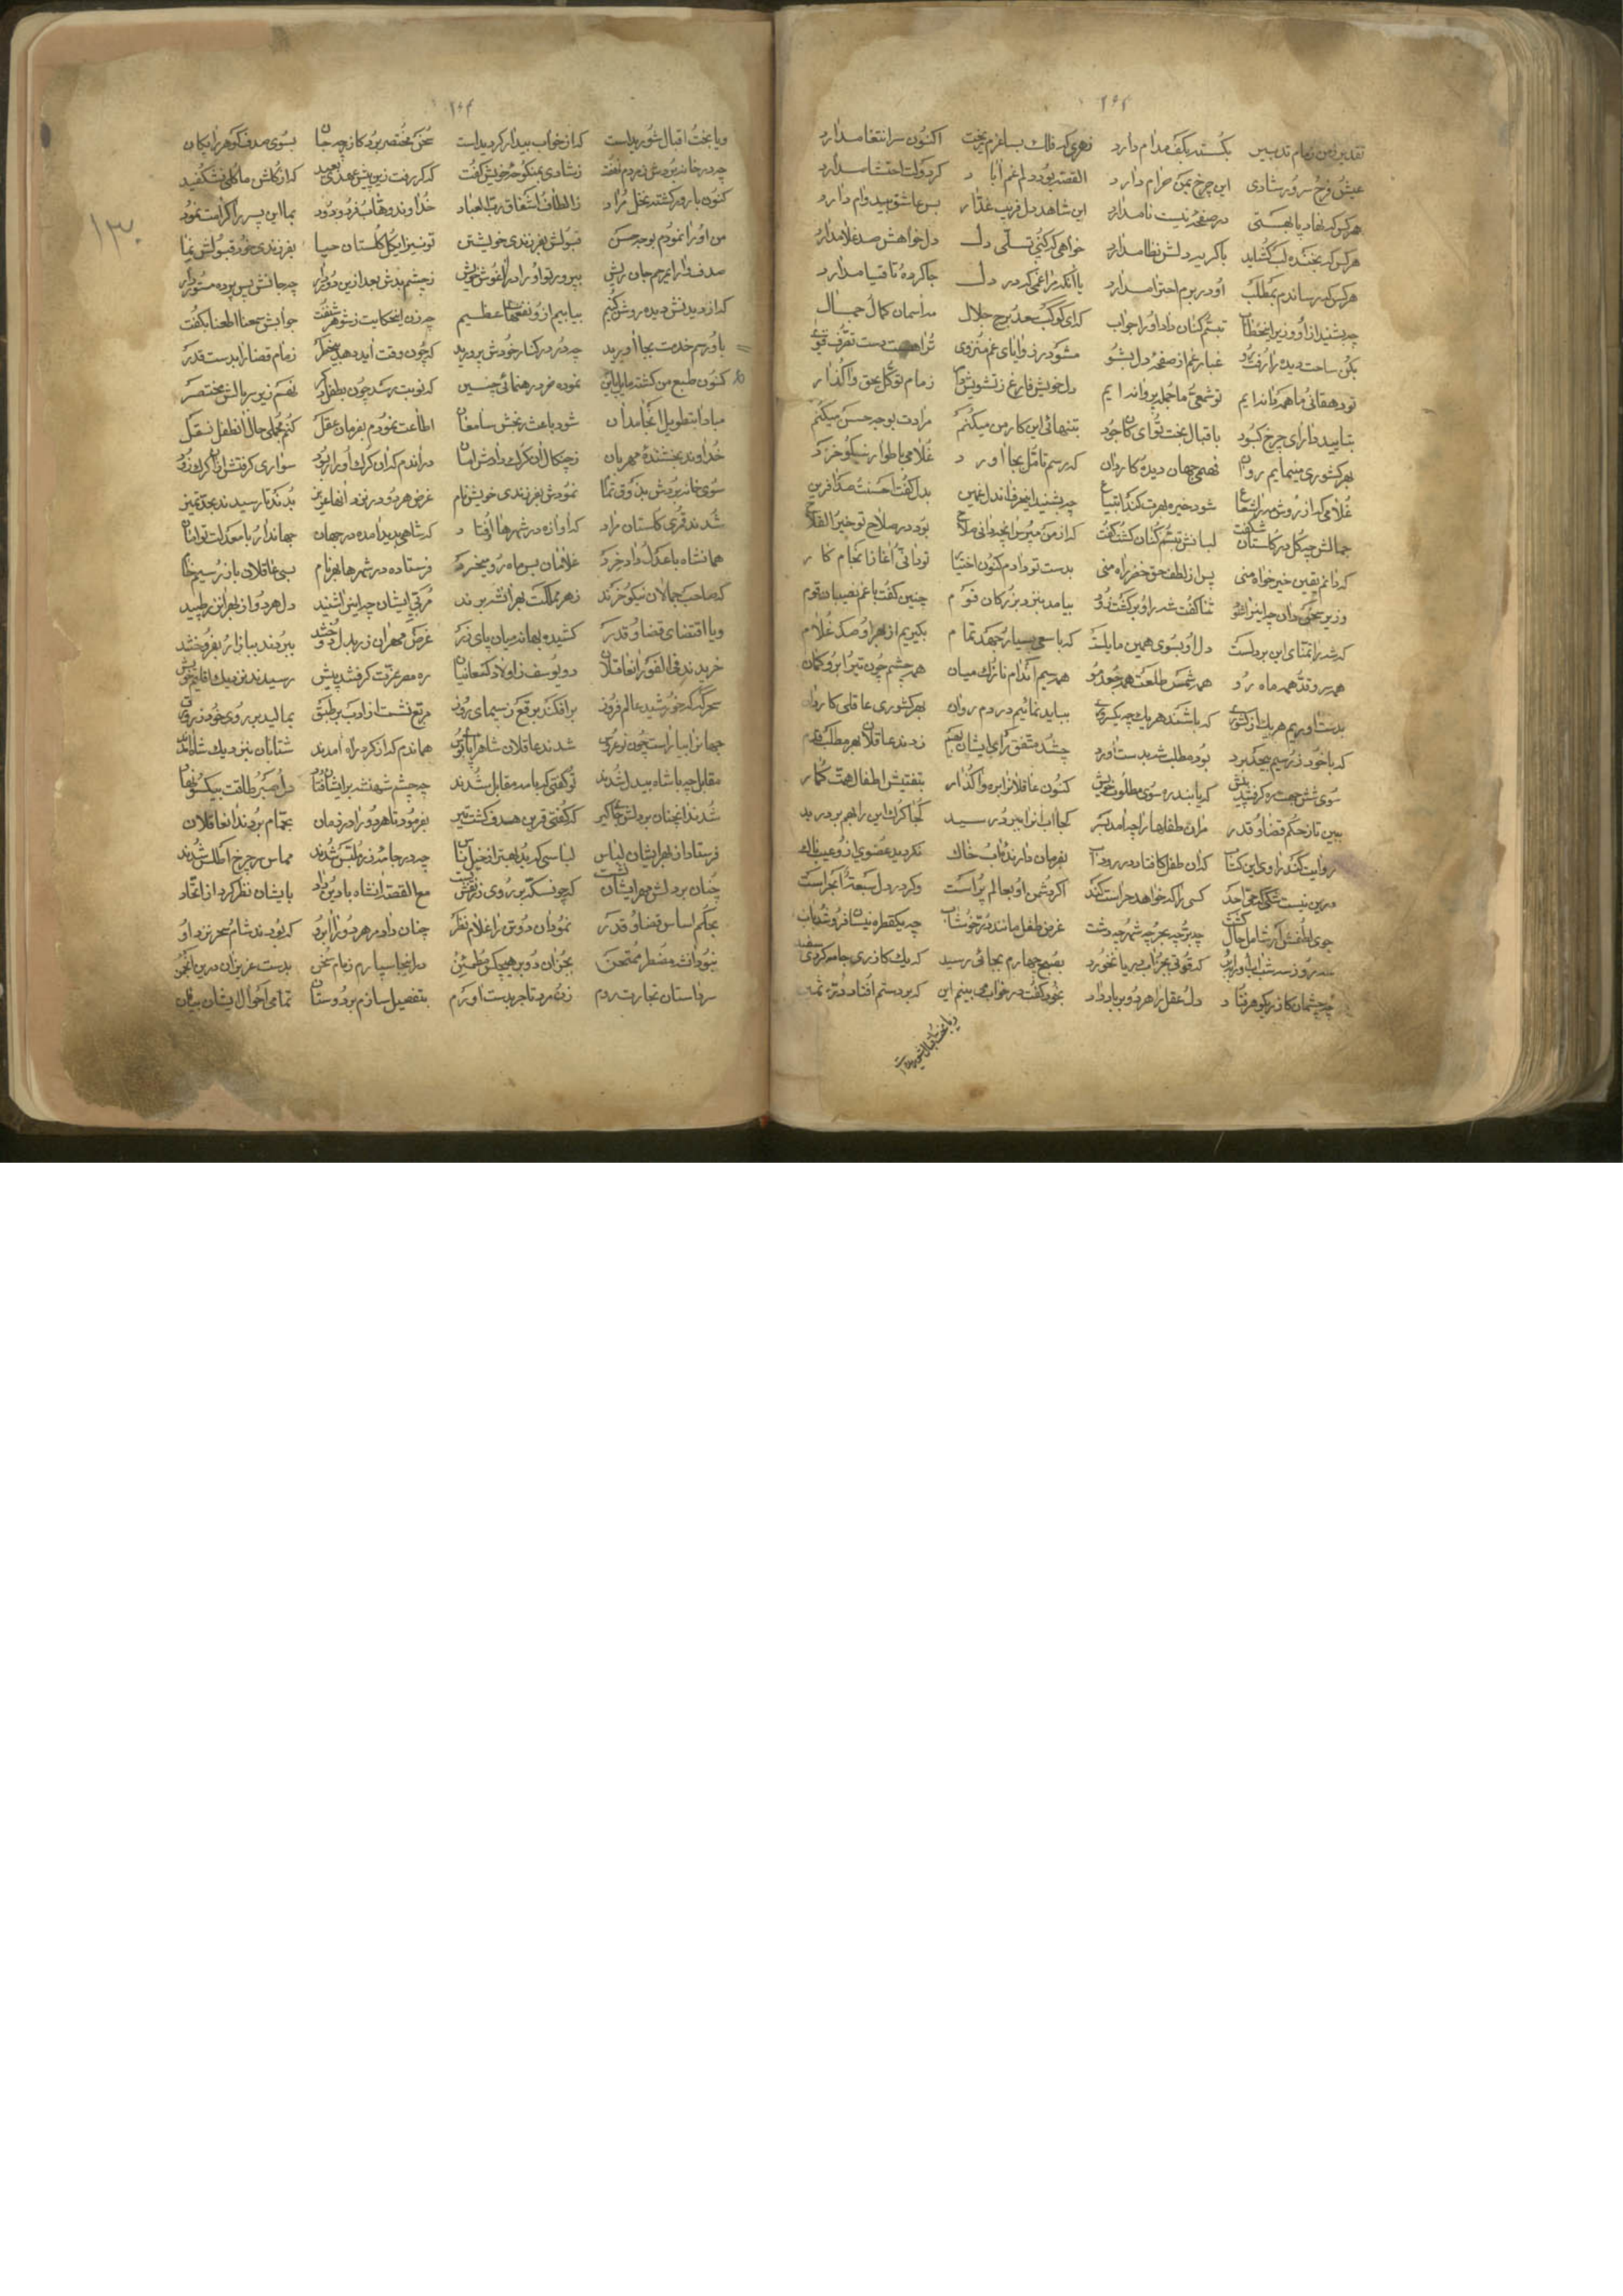 تقدیر من زمام تدبیر بکسسته بکف مدام دارد زهری که فلک بساغرم ریخت اکنون سر انتقام دارد
عیش و فرح و سرور شادی این چرخ بمن حرام دارد القصه بود دلم غم آباد کز دولت احتشام دارد
هر کس که نهاد پا بهستی در صفحه نیست نام دارد این شاهد دل فریب غدار بس عاشق بیدوام دارد
هر کس که بخنده لب گشاید با گریه دلش نظام دارد خواهی که کنی تسلی دل دل خواهش صد غلام دارد
هر کس که رساندم بمطلب او در برم احترام دارد با آنکه ترا غمی که در دل جا کرده تا قیام دارد
چه بشنید از او وزیر این خطاب تبسم کنان داد او را جواب که ای کوکب سعد برج جلال مه آسمان کمال جمال
بکن ساحت دیده را رفت و رو غبار غم از صفحه دل بشو مشو در زوایای غم منزوی ترا هست دست تصرف قوی
تو دهقانی ما همه دانه ایم تو شمعی ما جمله پروانه ایم دل خویش فارغ ز تشویش دار زمام توکل بحق واگذار
بتایید دارای چرخ کبود باقبال بخت تو ای کان جود بتنهائی این کار من میکنم مرادت بوجه حسن میکنم
بهر کشوری مینمایم روان فهیم جهان دیده کاردان که رسم تامل بجا آورد غلامی باطوار نیکو خرد
غلامی که از روش مه را شعاع شود خیره بهرت کند ابتیاع چه بشنید این حرف از دل غمین بدل گفت احسنت صد آفرین
جمالش چه گل در گلستان شگفت لبانش تبسم کنان گشت گفت که از من مپرس آنچه دانی صلاح بود در صلاح تو خیر الفلاح
که دانم یقین خیر خواه منی پس از لطف حق خضر راه منی بدست تو دادم کنون اختیار تو دانی آغاز انجام کار
وزیر سخن دان چه این را شنود ثنا گفت شه را و برگشت زود بیامد بنزد بزرگان قوم چنین گفت با غم نصیبان قوم
که شه را تمنای این بر دلست دل او بسوی همین مایلست که با سعی بسیار جهد تمام بگیریم از بهر او صد غلام
همه سرو قد همه ماه رو همه شمس طلعت همه جعد مو همه سیم اندام نازک میان همه چشم چون تیر ابرو کمان
بدست آوریم هر یک از کشوری که باشند هر یک چه یک پری بباید نمائیم در دم روان بهر کشوری عاقلی کاردان
که با خود زر سیم بیحد برد بود مطلب شه بدست آورد چه شد متفق رای ایشان بهم زدند عاقلان بهر مطلب قدم
سوی شش جهت ره گرفتند پیش که یابند ره سوی مطلوب خویش کنون عاقلان را به ره واگذار بتفتیش اطفال همت گمار
ببین تا ز حکم قضا و قدر مران طفلها را چه آمد بسر کجا آب آنرا ببرد رسید کجا گرگ این را بهم بر درید
روایت کند راوی این کتاب که آن طفل کافتاد در رود آب بفرمان دارنده آب خاک نگردید عضوی از او عیب ناک
درین نیست شکی گه حی احد کسی را که خواهد حراست کند اگر دشمن او بعالم پر است وگر در دل سبعة ابحر است
چوی لطفش گر شامل حال گشت چه بر چه بحر چه شهر چه دشت غرض طفل مانند در خوشاب چه یکقطره نیسان فرو شد بآب
سه روز سه شب آب او را ببرد که قوتی بجز آب دریا نخورد بصبح چهارم بجائی رسید که یک گازری جامه کردی سفید
چه چشمان گازر بگوهر فتاد دل عقل را هر دو بر باد داد بخود گفت در خواب می بینم این که بر دستم افتاد در ثمین
ویا بخت اقبال شوریداست
ویا بخت اقبال شوریداست که از خواب بیدار گردیداست سخن مختصر برد گازر چه جان بسوی صدف گوهر رایگان
چه در خانه بردش در دم نهفت ز شادی بنیکو خو خویش گفت که گر رفت زین پیش عهدی بعید که از گلشن ما گلی نشکفید
کنون بارور گشته نخل مراد ز الطاف اشفاق رب العباد خداوند وهاب فرد ودود بما این پسر را کرامت نمود
من او را نمودم بوجه حسن قبولش بفرزندی خویشتن تو نیز ای گل گلستان حیا بفرزندی خود قبولش نما
صدف وار ای مرهم جان ریش بپرور تو او را در آغوش خویش ز چشم بدش بعد ازین دور دار چه جانش پس پرده مستور دار
که از دیدنش دیده روشن کنیم بیابیم از او نفعها عظیم چه زن این حکایت ز شوهر شنفت جوابش سمعنا اطعنا بگفت
باو رسم خدمت بجا آورید چه در در کنار خودش پرورید که چون وقت آید دهد بیخطر زمام قضا را بدست قدر
کنون طبع من گشته مایل باین نموده خرد رهنمائی چنین که نوبت رسد چون بطفل دگر نهم زیر سر بالش مختصر
مبادا بتطویل انجامدان شود باعث رنجش سامعان اطاعت نمودم بفرمان عقل کنم مجملی حال آن طفل نقل
خداوند بخشنده مهربان ز چنگال آن گرگ دادش امان در آندم که آن گرگ او را ربود سواری گرفتش از آن گرگ زود
سوی خانه بردش بذوق تمام نمودش بفرزندی خویش نام غرض هر دو در نزد آنها عزیز بدند تا رسیدند بحد تمیز
شدند قمری گلستان مراد که آوازه در شهرها اوفتاد که شاهی پدید آمده در جهان جهاندار با معدلت توامان
همانشاه با عدل داد خرد غلامان بس ماه رو میخرد فرستاده در شهرها بهر نام بسی عاقلان با زر سیم خام
که صاحب جمالان نیکو خرند ز هر مملکت بهر آنشه برند مربی ایشان چه این را شنید دل هر دو از بهر این زر طپید
ویا اقتضای قضا و قدر کشیده بها در میان پای زر غرض مهر آن زر بدل دوختند ببردند ببازار بفروختند
خریدند فی الفور آن عاقلان دو یوسف ز اولاد کنعانیان ره مصر عزت گرفتند پیش رسیدند نزدیک اقلیم خویش
سحرگه که خورشید عالم فروز برافکند برقع ز سیمای روز مربع نشست از ادب بر طبق بمالید بر روی خود زر ورق
جهانرا بیاراست چون نو عروس شدند عاقلان شاه را پابوس هماندم که از گرد راه آمدند شتابان بنزدیک شاه آمدند
مقابل چه با شاه بیدل شدند تو گفتی که با مه مقابل شدند چه چشم شهنشه بر ایشان فتاد دل صبر طاقت بیکسو نهاد
شدند آنچنان بر دلش جایگیر که گفتی قرین هدف گشت تیر بفرمود تا هر دو را در زمان بحمام بردند آن عاقلان
فرستاد از بهر ایشان لباس لباسی که بد بهتر از خیل ناس چه در جامه زر ملبس شدند مماس سر چرخ اطلس شدند
چنان بر دلش مهر ایشان نشست که چون سکه بر روی زر نقش بست مع القصه آنشاه با دین و داد بایشان نظر کرد از اتحاد
بحکم اساس قضا و قدر نمود آن دو تن را غلام نظر چنان داد مر هر دو را آبرو که بودند شام سحر نزد او
نبود آنشه مضطر ممتحن بجز آن دو بر هیچکس مطمئن در اینجا سپارم زمام سخن بدست عزیزان درین انجمن
سر داستان تجارت روم زن مرد تاجر بدست آورم بتفصیل سازم بر دوستان تمامی احوال ایشان بیان
۱۳۰